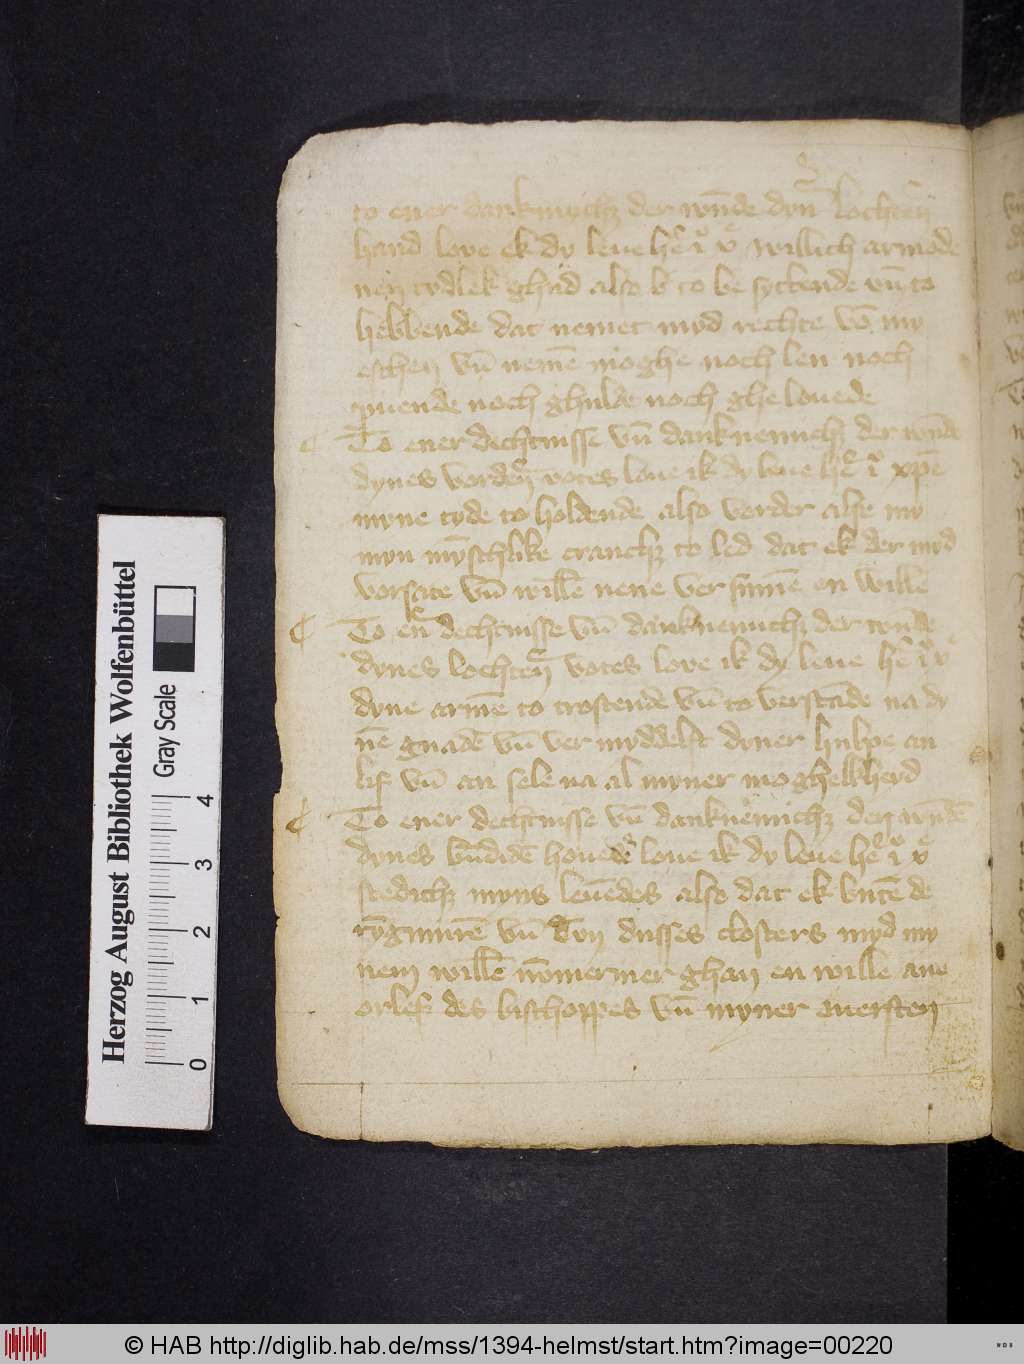 to ener danknnych3 der wūde dyn̄ lochtern̄
hand love ek dy leue hē iͦ vͤ willich armode
neyn tydlek ghud also b to be syttende vn̄ to
hebbende dat nemet myd rechte vō my
eschen vn̄ nemē moghe noch len noch
pruende noch ghulde noch ghelouede
¶ To ener dechtnisse vn̄ danknemich3 der wūde
dynes vordern̄ votes loue ik dy leue hē iͦ xpē
myne tyde to holdende also verder alse my
myn mȳschlike cranch3 to led dat ek der myd
vorsate vn̄ willē nene versumē en wille
¶ To enr̄ dechtnisse vn̄ danknemich3 der wūde
dynes lochtern̄ votes love ik dy leue hē iͦ vͤ
dyne armē to trostende vn̄ to verstādē na dy
nē gnadē vn̄ vermyddelst dyner hulpe an
lif vn̄ an sele na al myner moghelkheyd
¶ To ener dechtnisse vn̄ danknemich3 den wūdē
dynes būdidē houedes loue ik dy leue hē iͦ vͤ
stedich3 myns leuēdes also dat ek vnte de
rȳgmurē vn̄ dōn dusses closters myd my
nem willē nūmermer ghan en wille ane
orlef des bisschoppes vn̄ myner ouersten
Herzog August Bibliothek Wolfenbüttel
Gray Scale
0 1 2 3 4
© HAB http://diglib.hab.de/mss/1394-helmst/start.htm?image=00220